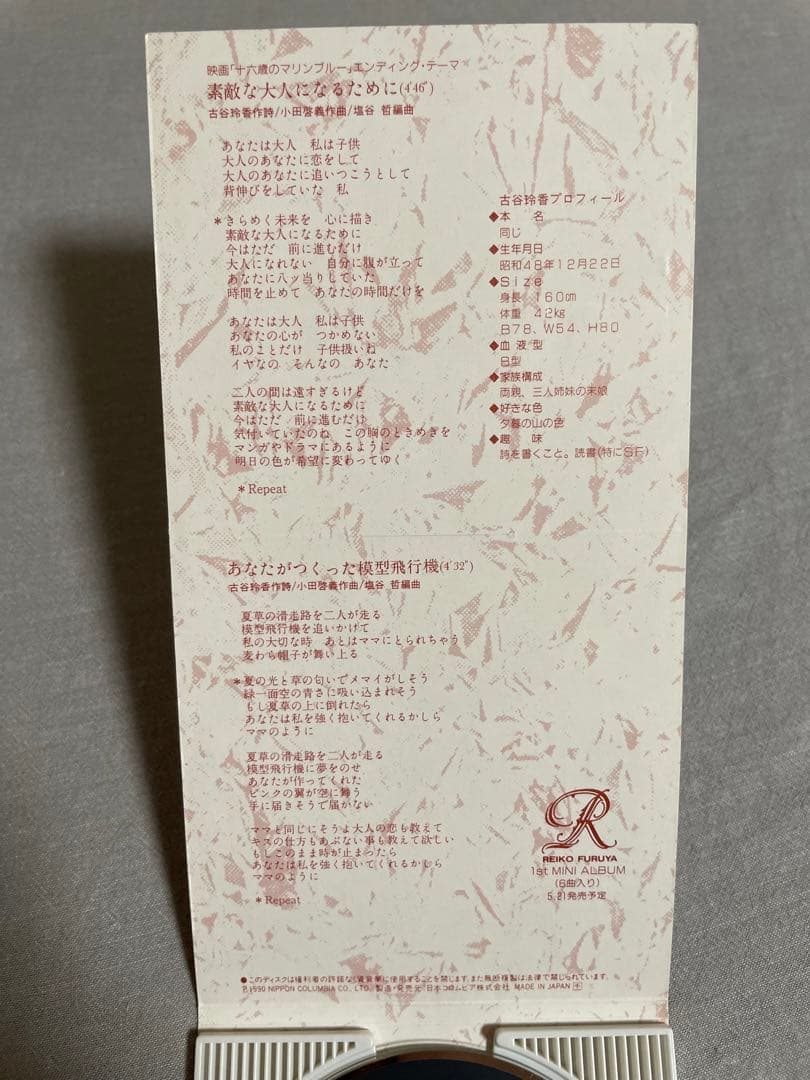 映画「十六歳のマリンブルー」エンディング・テーマ
素敵な大人になるために(4'46")
古谷玲香作詩/小田啓義作曲/塩谷 哲編曲
あなたは大人 私は子供
大人のあなたに恋をして
大人のあなたに追いつこうとして
背伸びをしていた 私
*きらめく未来を 心に描き
素敵な大人になるために
今はただ 前に進むだけ
大人になれない 自分に腹が立って
あなたに八ッ当りしていた
時間を止めて あなたの時間だけを
あなたは大人 私は子供
あなたの心が つかめない
私のことだけ 子供扱いね
イヤなの そんなの あなた
二人の間は遠すぎるけど
素敵な大人になるために
今はただ 前に進むだけ
気付いていたのね この胸のときめきを
マンガやドラマにあるように
明日の色が希望に変わってゆく
*Repeat
古谷玲香プロフィール
◆本 名
同じ
◆生年月日
昭和48年12月22日
◆Size
身長 160㎝
体重 42㎏
B78、W54、H80
◆血液型
B型
◆家族構成
両親、三人姉妹の末娘
◆好きな色
夕暮の山の色
◆趣 味
詩を書くこと。読書(特にSF)
あなたがつくった模型飛行機(4'32")
古谷玲香作詩/小田啓義作曲/塩谷 哲編曲
夏草の滑走路を二人が走る
模型飛行機を追いかけて
私の大切な時 あとはママにとられちゃう
麦わら帽子が舞い上る
*夏の光と草の匂いでメマイがしそう
緑一面空の青さに吸い込まれそう
もし夏草の上に倒れたら
あなたは私を強く抱いてくれるかしら
ママのように
夏草の滑走路を二人が走る
模型飛行機に夢をのせ
あなたが作ってくれた
ピンクの翼が空に舞う
手に届きそうで届かない
ママと同じにそうよ大人の恋も教えて
キスの仕方もあぶない事も教えて欲しい
もしこのまま時が止まったら
あなたは私を強く抱いてくれるかしら
ママのように
*Repeat
R
REIKO FURUYA
1st MINI ALBUM
(6曲入り)
5.21発売予定
●このディスクは権利者の許諾なく賃貸業に使用することを禁じます。また無断複製は法律で禁じられています。
℗1990 NIPPON COLUMBIA CO., LTD. 製造・発売元:日本コロムビア株式会社 MADE IN JAPAN